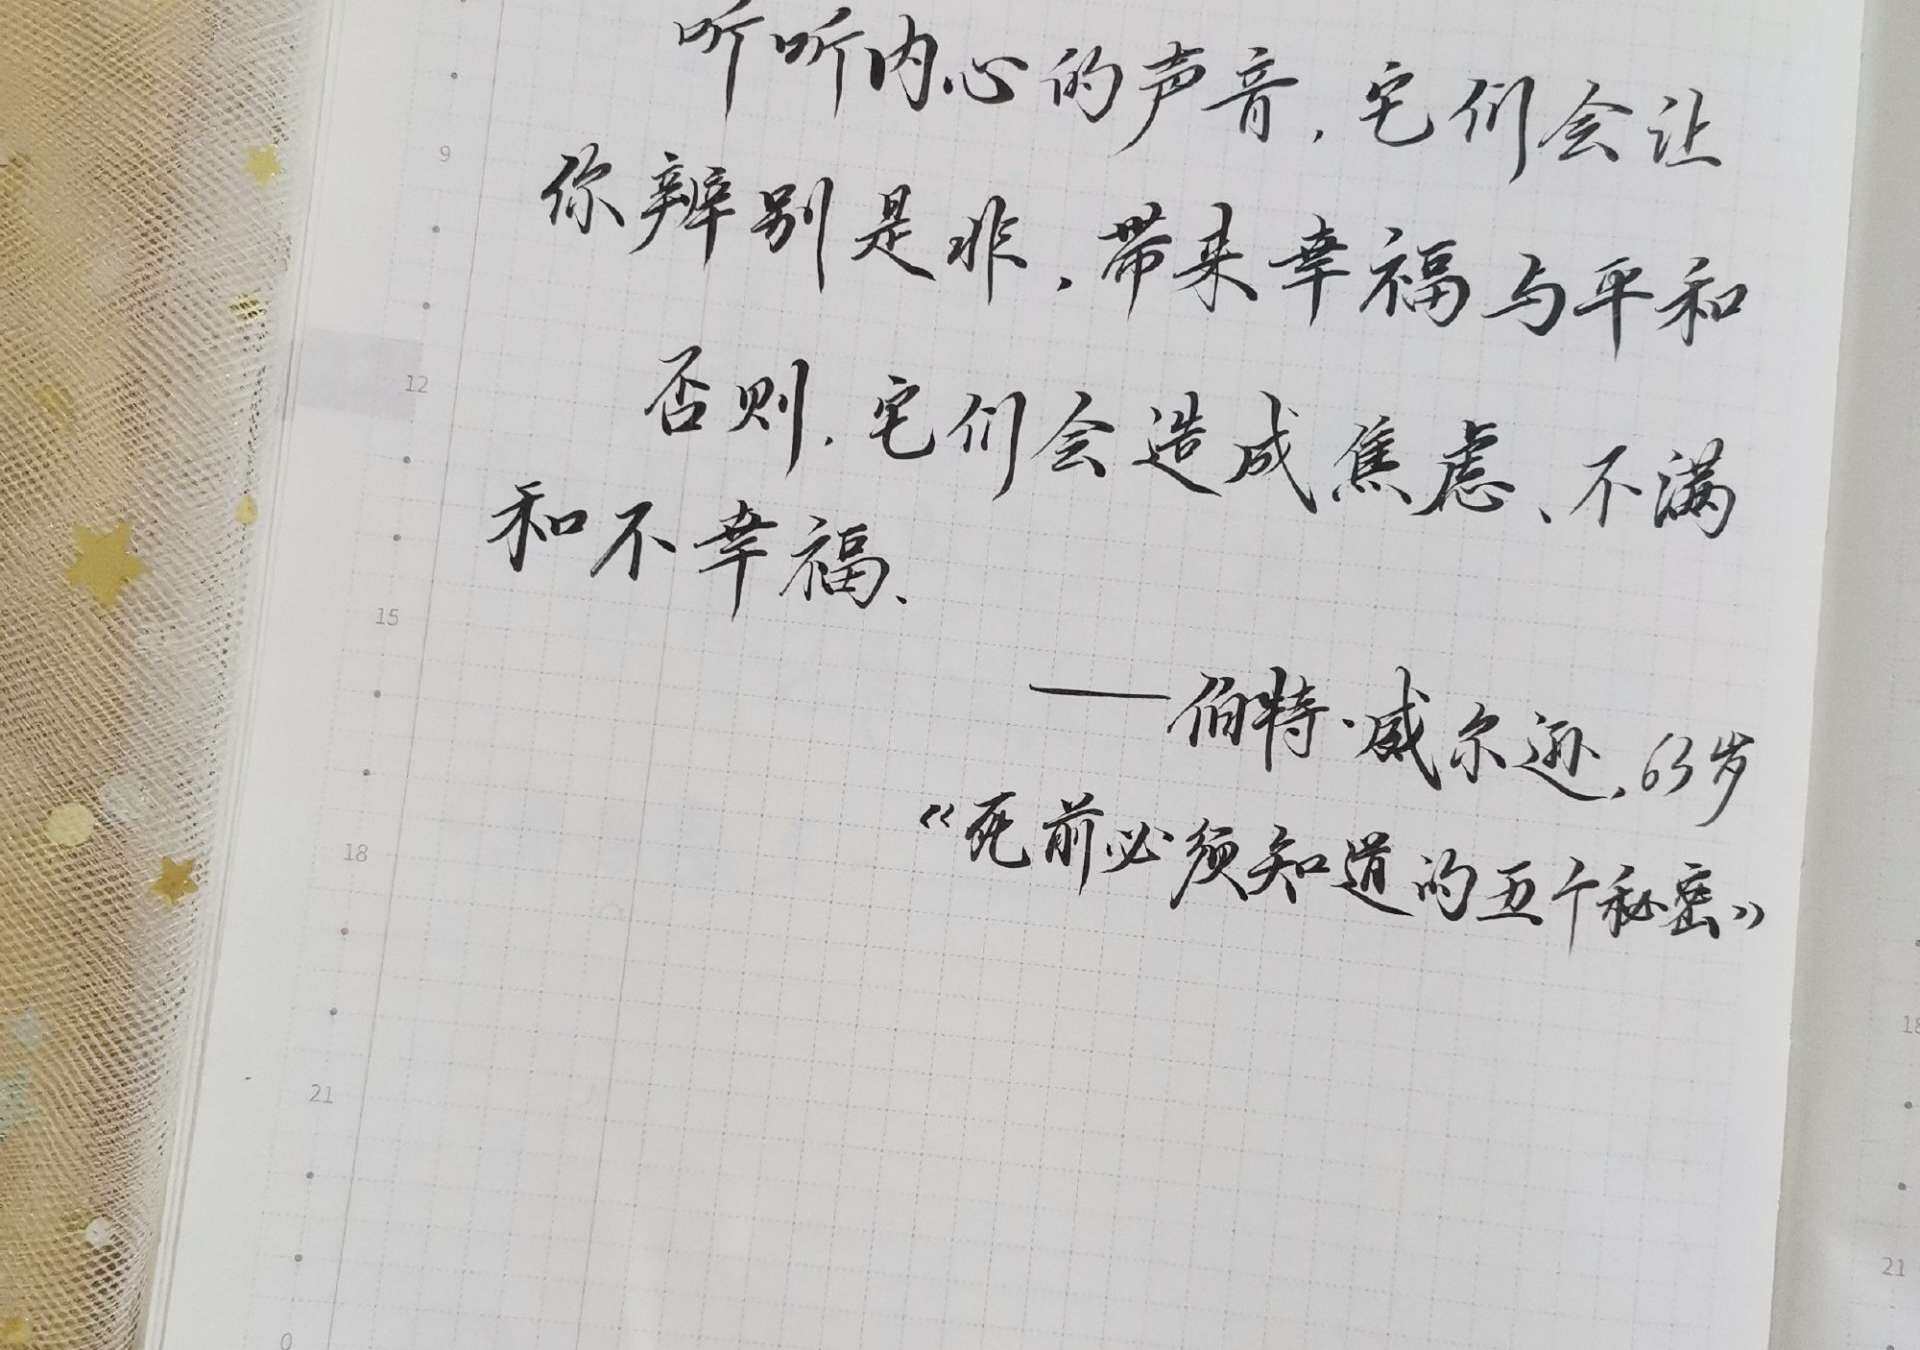 听听内心的声音，它们会让
你辨别是非，带来幸福与平和
否则，它们会造成焦虑、不满
和不幸福、
——伯特·威尔逊，63岁
《死前必须知道的五个秘密》
9
12
15
18
21
0
18
21